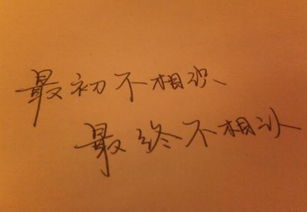 最初不相识、
最终不相认